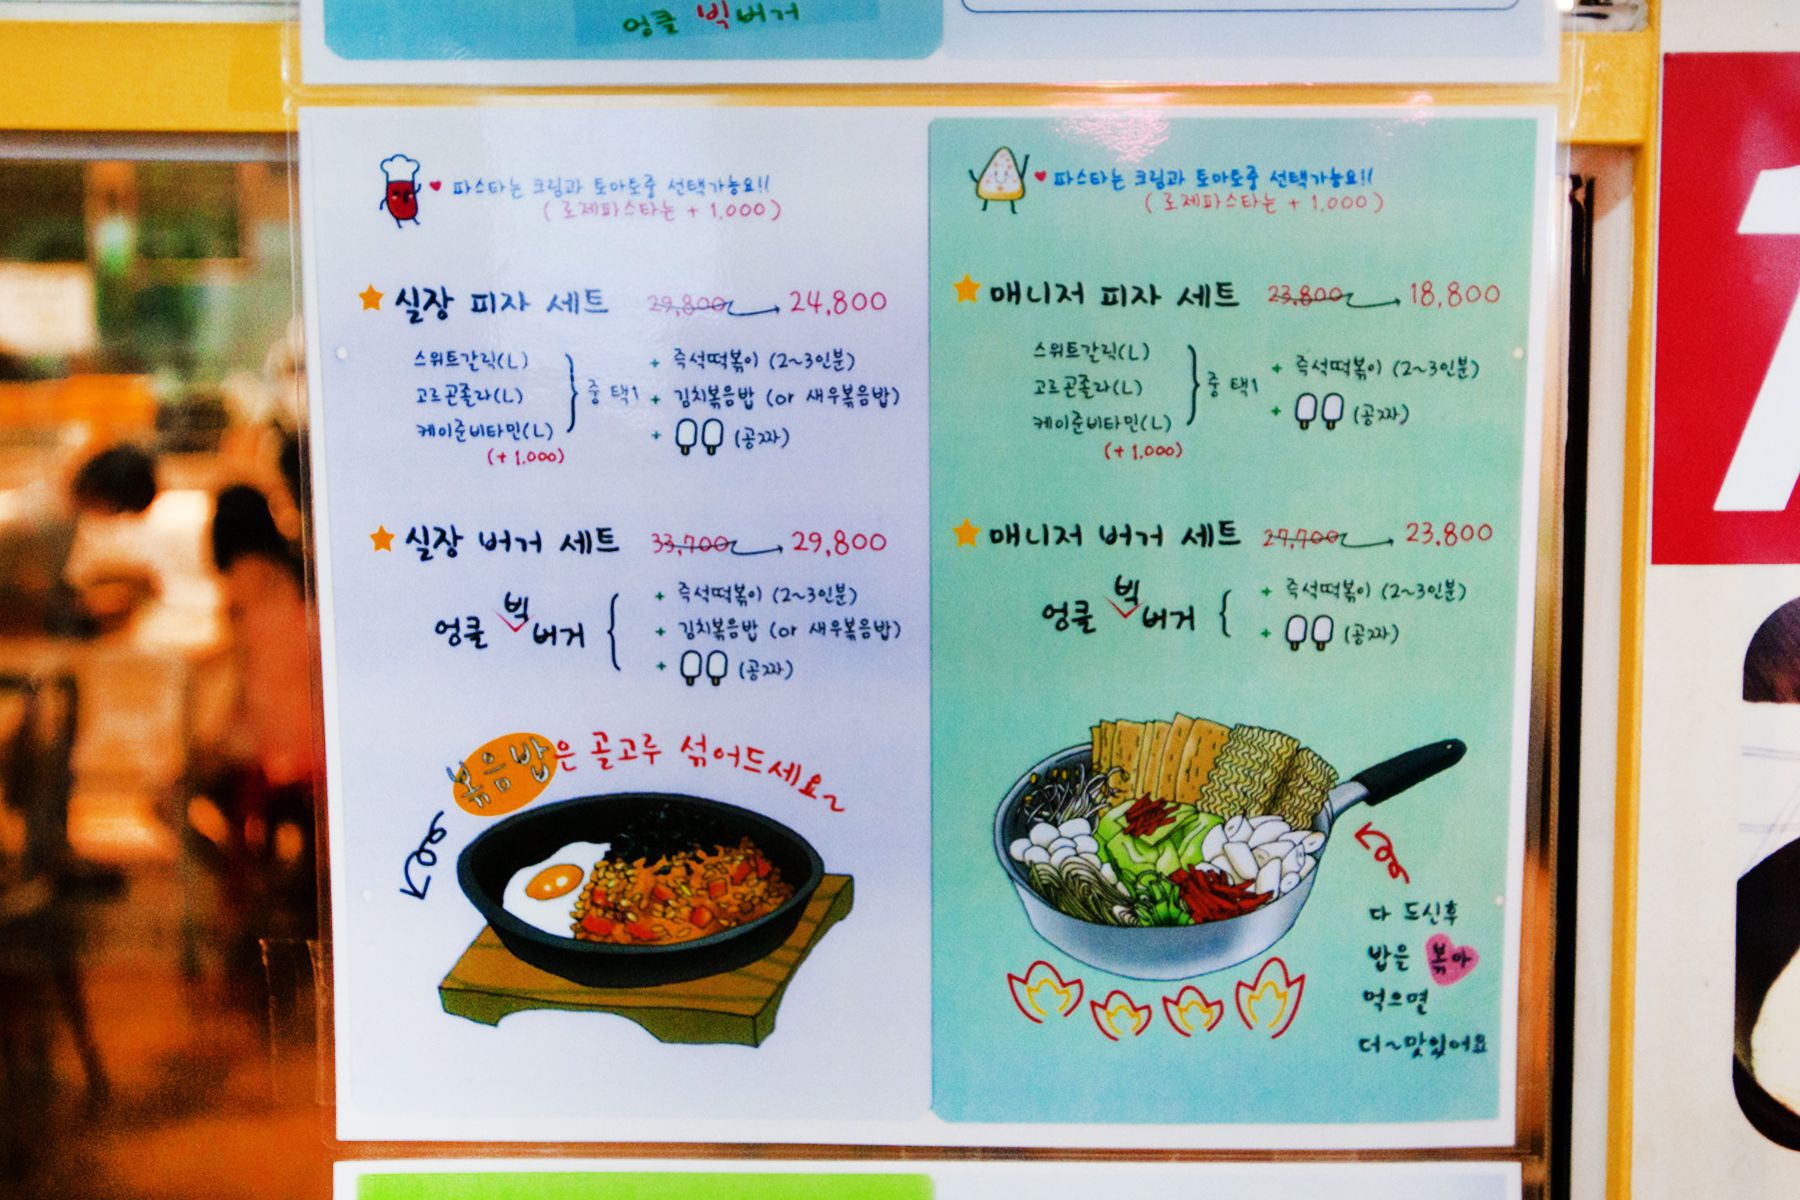 엉클 빅버거
파스타는 크림과 토마토중 선택가능요!!
(로제파스타는 + 1,000)
실장 피자 세트 29,800 24,800
스위트갈릭(L)
고르곤졸라(L)
케이준비타민(L)
(+ 1,000)
중 택1
+ 즉석떡볶이 (2~3인분)
+ 김치볶음밥 (or 새우볶음밥)
+ (공짜)
실장 버거 세트 33,700 29,800
엉클 빅 버거
+ 즉석떡볶이 (2~3인분)
+ 김치볶음밥 (or 새우볶음밥)
+ (공짜)
볶음밥은 골고루 섞어드세요~
파스타는 크림과 토마토중 선택가능요!!
(로제파스타는 + 1,000)
매니저 피자 세트 23,800 18,800
스위트갈릭(L)
고르곤졸라(L)
케이준비타민(L)
(+ 1,000)
중 택1
+ 즉석떡볶이 (2~3인분)
+ (공짜)
매니저 버거 세트 27,700 23,800
엉클 빅 버거
+ 즉석떡볶이 (2~3인분)
+ (공짜)
다 드신후
밥을 볶아
먹으면
더~맛있어요